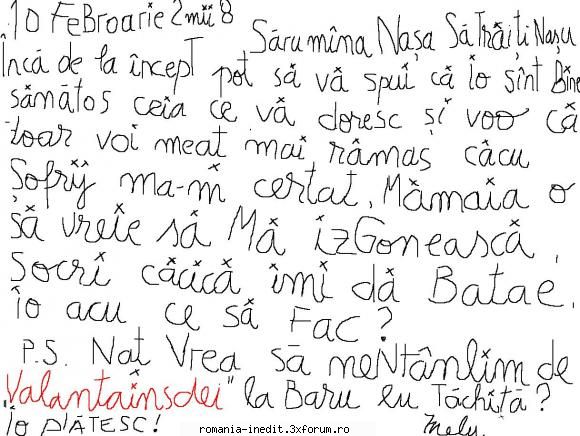 10 FeBroarie 2mii8
Săru mîna Nașa Să Trăiți Nașu
Încă de la încept pot să vă spui că io sînt Bine
sămătos ceia ce vă doresc și voo că
toar voi meat mai rămas căcu
Sofrij ma-m certat. Mămaia o
să vreie să Mă izGonească,
Socri căcică imi dă Batae.
Io acu ce să Fac?
P.S. Nat Vrea să neNtânlim de
Valantainsdei" la Baru lu Tăchiță?
Io PLĂTESC!
Melu.
romania-inedit.3xforum.ro